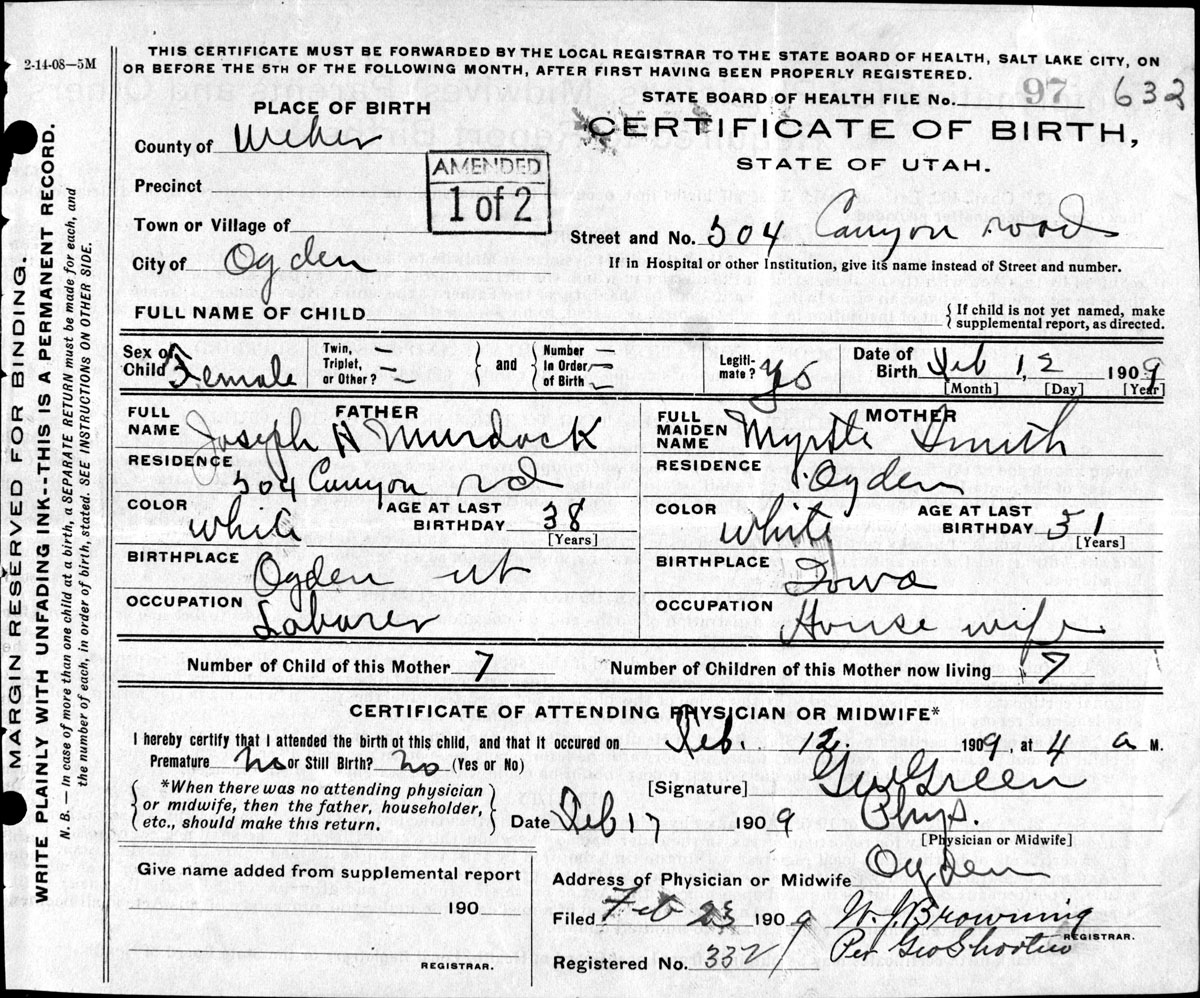 2-14-08—5M
THIS CERTIFICATE MUST BE FORWARDED BY THE LOCAL REGISTRAR TO THE STATE BOARD OF HEALTH, SALT LAKE CITY, ON
OR BEFORE THE 5TH OF THE FOLLOWING MONTH, AFTER FIRST HAVING BEEN PROPERLY REGISTERED.
MARGIN RESERVED FOR BINDING.
WRITE PLAINLY WITH UNFADING INK--THIS IS A PERMANENT RECORD.
N. B. — In case of more than one child at a birth, a SEPARATE RETURN must be made for each, and
the number of each, in order of birth, stated. SEE INSTRUCTIONS ON OTHER SIDE.
STATE BOARD OF HEALTH FILE No. 97 632
PLACE OF BIRTH
CERTIFICATE OF BIRTH,
STATE OF UTAH.
County of Weber
AMENDED
1 of 2
Precinct
Town or Village of
Street and No. 504 Canyon road
City of Ogden
If in Hospital or other Institution, give its name instead of Street and number.
FULL NAME OF CHILD
{ If child is not yet named, make
supplemental report, as directed.
Sex of Child Female
Twin, Triplet, or Other? —
and
Number In Order of Birth —
Legitimate? Yes
Date of Birth Feb 12 1909
[Month] [Day] [Year]
FATHER
FULL NAME Joseph H Murdock
RESIDENCE 504 Canyon rd
COLOR White AGE AT LAST BIRTHDAY 38 [Years]
BIRTHPLACE Ogden ut
OCCUPATION Laborer
MOTHER
FULL MAIDEN NAME Myrtle Smith
RESIDENCE Ogden
COLOR White AGE AT LAST BIRTHDAY 31 [Years]
BIRTHPLACE Iowa
OCCUPATION House wife
Number of Child of this Mother 7 Number of Children of this Mother now living 7
CERTIFICATE OF ATTENDING PHYSICIAN OR MIDWIFE*
I hereby certify that I attended the birth of this child, and that it occured on Feb. 12. 1909, at 4 a M.
Premature No or Still Birth? No (Yes or No)
{ *When there was no attending physician
or midwife, then the father, householder,
etc., should make this return. }
[Signature] Geo Green
Date Feb 17 1909 Phys.
[Physician or Midwife]
Give name added from supplemental report
190
REGISTRAR.
Address of Physician or Midwife Ogden
Filed Feb 23 1909 W. J. Browning
REGISTRAR.
Per Geo Shorten
Registered No. 332